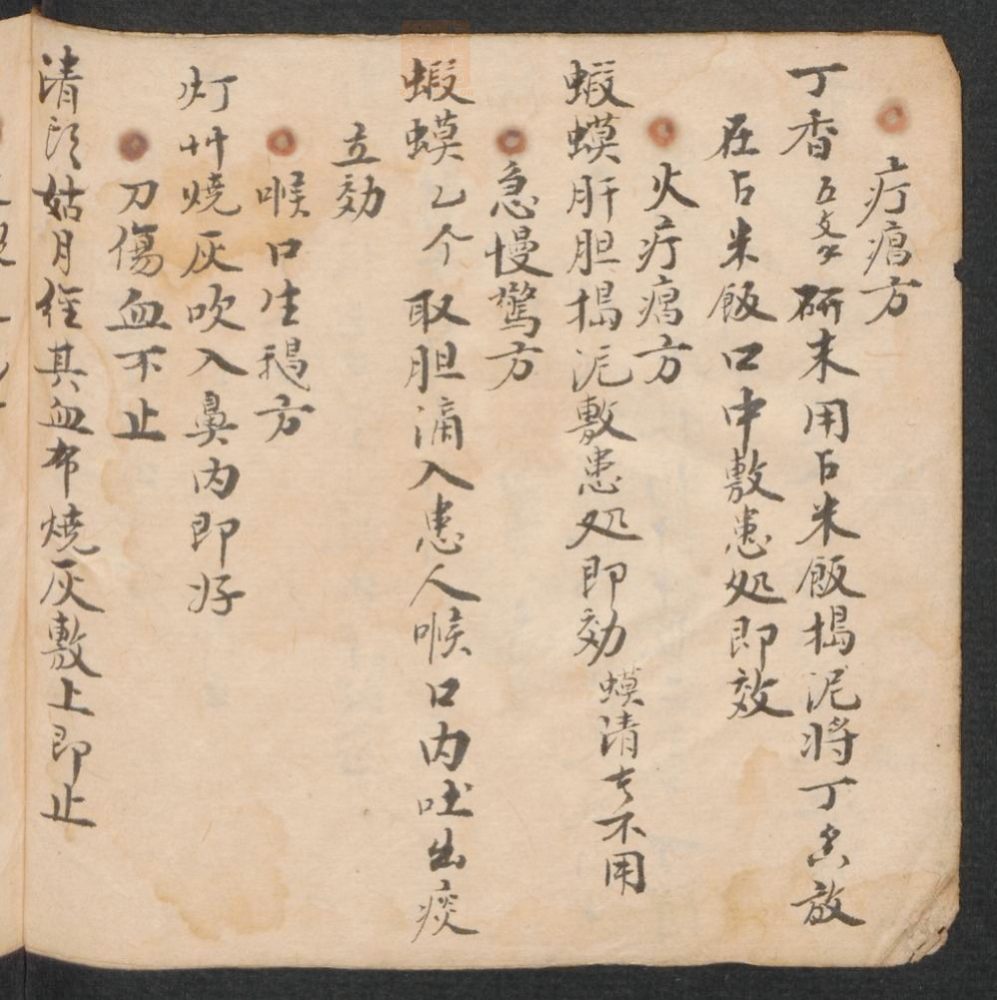 疔瘡方
丁香五文 研末用占米飯搗泥將丁香放
在占米飯口中敷患処即效
火疔瘡方
蝦蟆肝胆搗泥敷患処即効 蟆清去不用
急慢驚方
蝦蟆乙个 取胆滴入患人喉口内吐出痰
立効
喉口生鵝方
灯艸燒灰吹入鼻内即好
刀傷血不止
清 姑月經其血布燒灰敷上即止